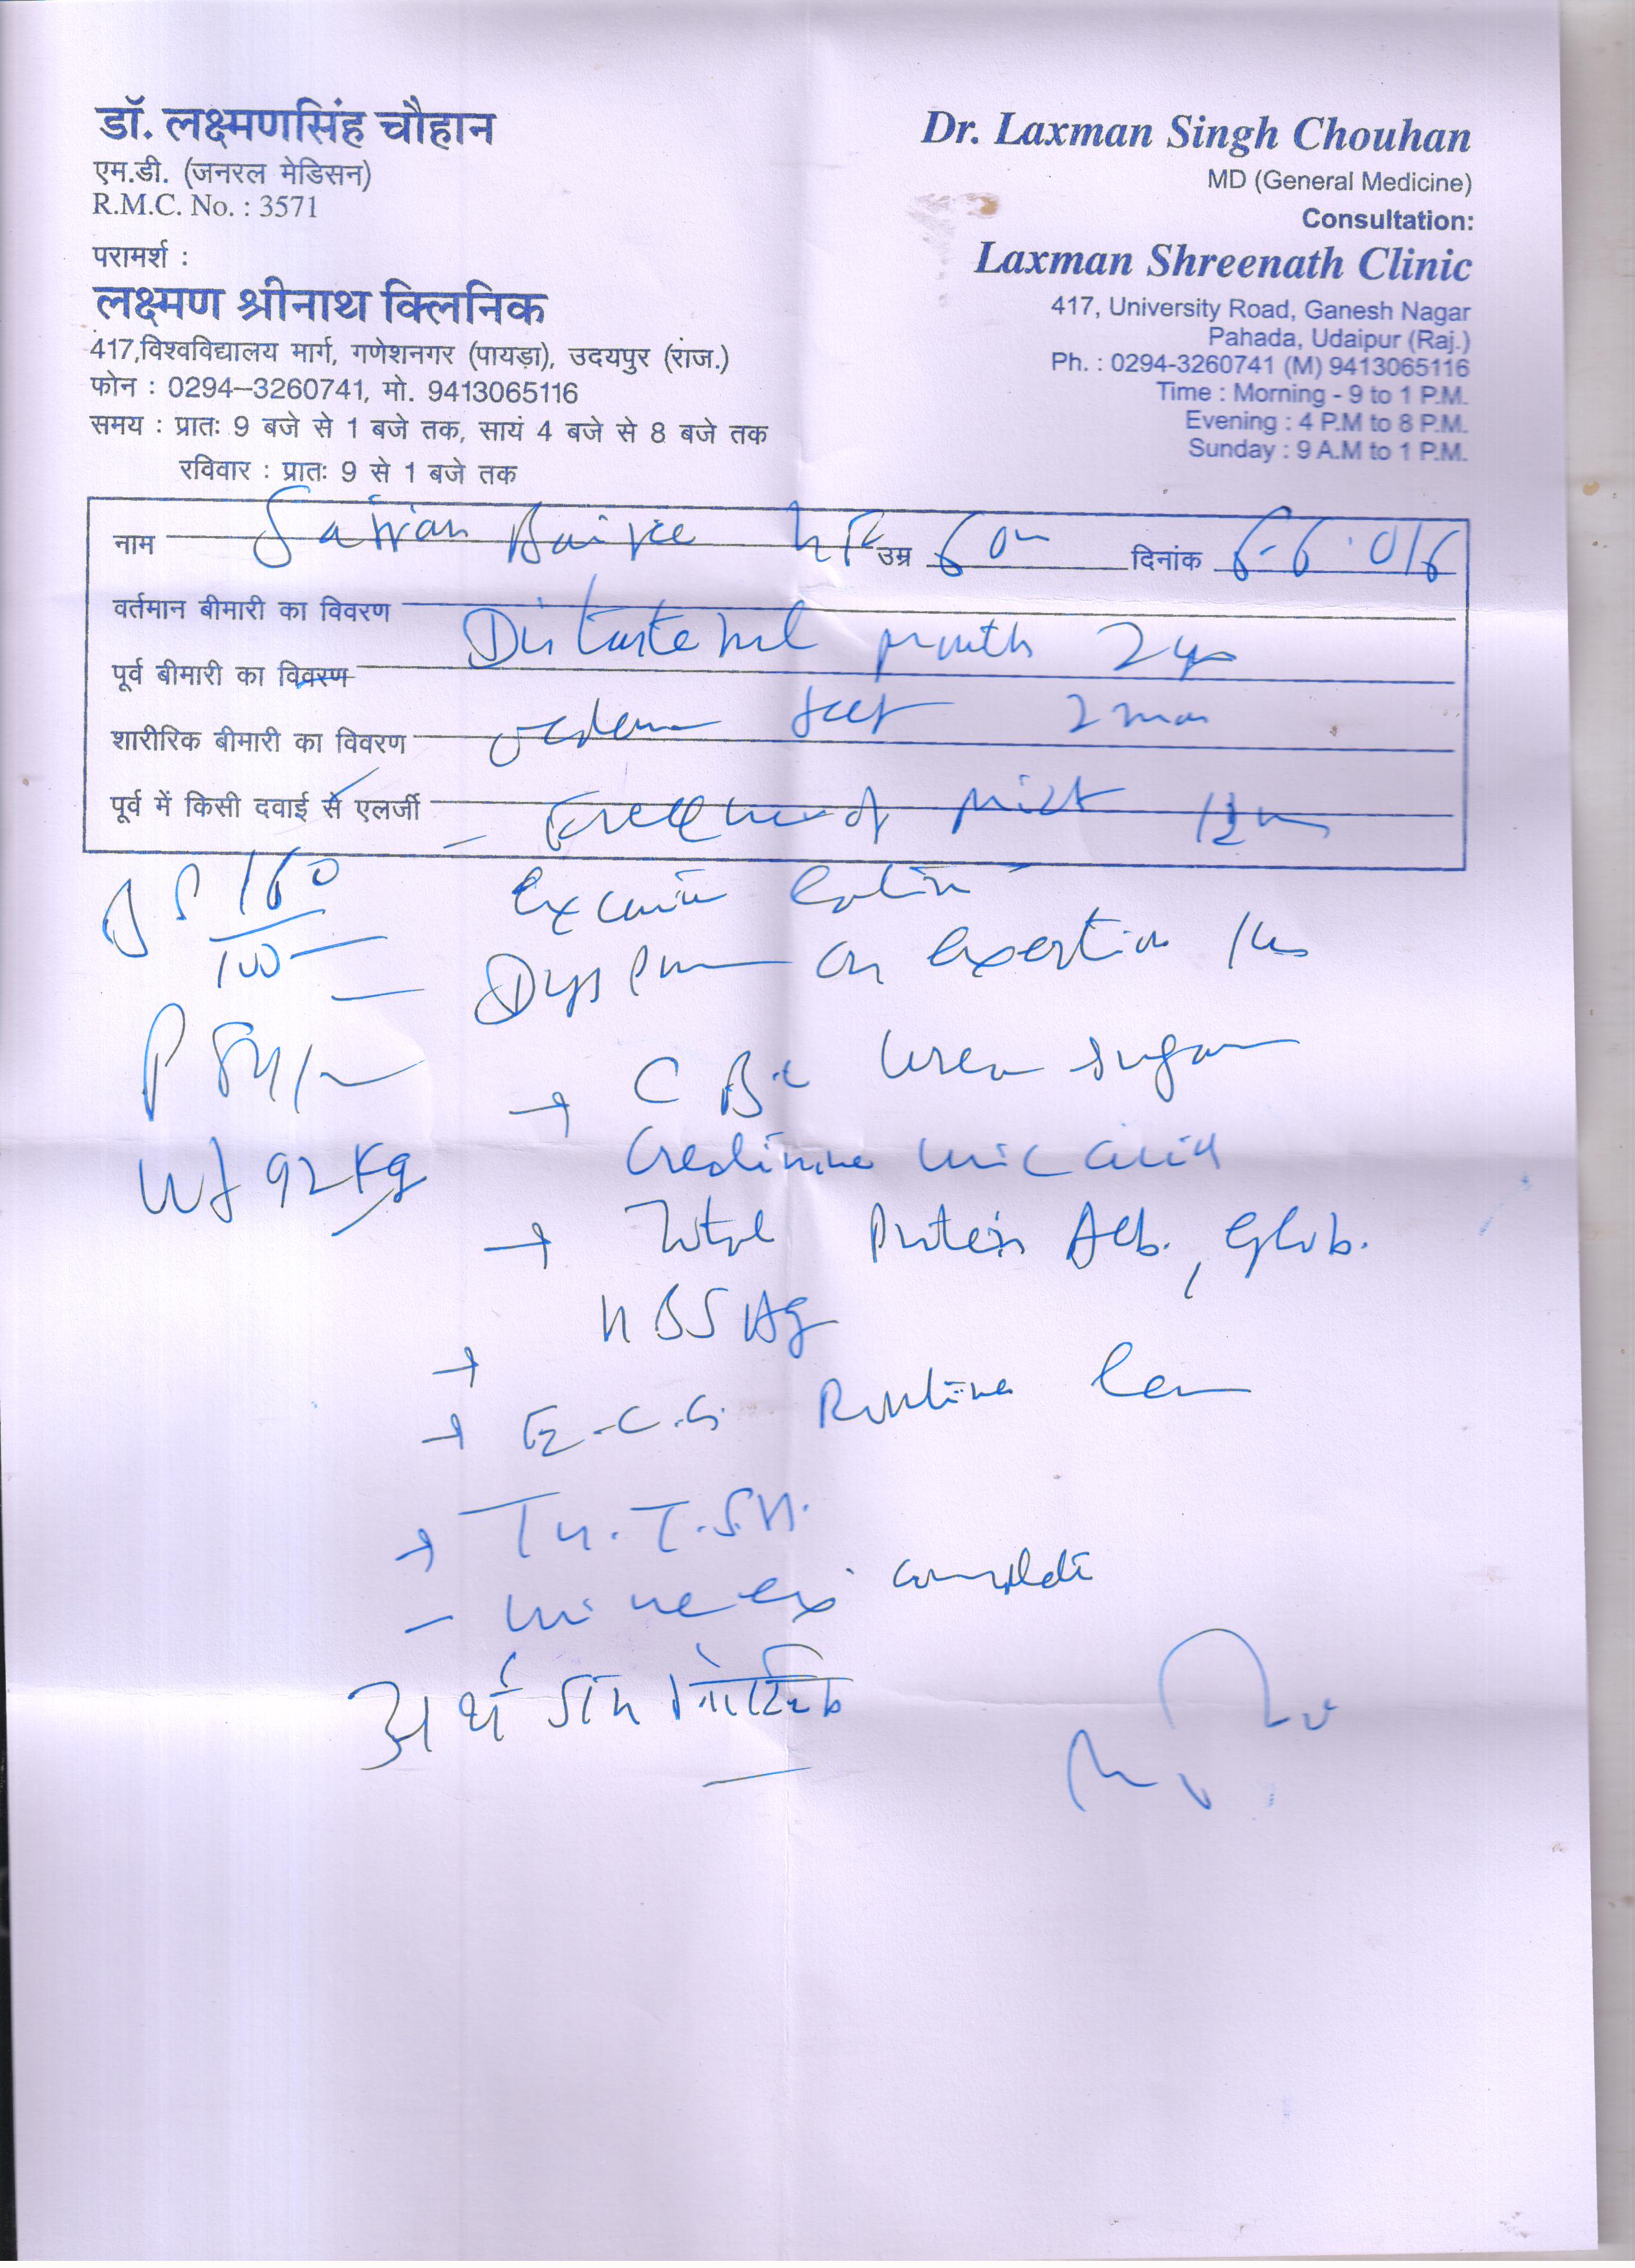 डॉ. लक्ष्मणसिंह चौहान
एम.डी. (जनरल मेडिसन)
R.M.C. No. : 3571
परामर्श :
लक्ष्मण श्रीनाथ क्लिनिक
417,विश्वविद्यालय मार्ग, गणेशनगर (पायड़ा), उदयपुर (राज.)
फोन : 0294–3260741, मो. 9413065116
समय : प्रातः 9 बजे से 1 बजे तक, सायं 4 बजे से 8 बजे तक
रविवार : प्रातः 9 से 1 बजे तक
Dr. Laxman Singh Chouhan
MD (General Medicine)
Consultation:
Laxman Shreenath Clinic
417, University Road, Ganesh Nagar
Pahada, Udaipur (Raj.)
Ph. : 0294-3260741 (M) 9413065116
Time : Morning - 9 to 1 P.M.
Evening : 4 P.M to 8 P.M.
Sunday : 9 A.M to 1 P.M.
नाम उम्र 60 दिनांक 6-6-016
वर्तमान बीमारी का विवरण
mouth 2
पूर्व बीमारी का विवरण
feet 2
शारीरिक बीमारी का विवरण
पूर्व में किसी दवाई से एलर्जी
160
100
on exertion
P 84/
→ C B.C Urea Sugar
Wt 92 Kg
Creatinine Uric acid
→ Total Protein Alb., Glob.
→ HBSAg
→ E.C.G. Routine
→ T4. T.S.H.
- Urine ex complete
अर्थ